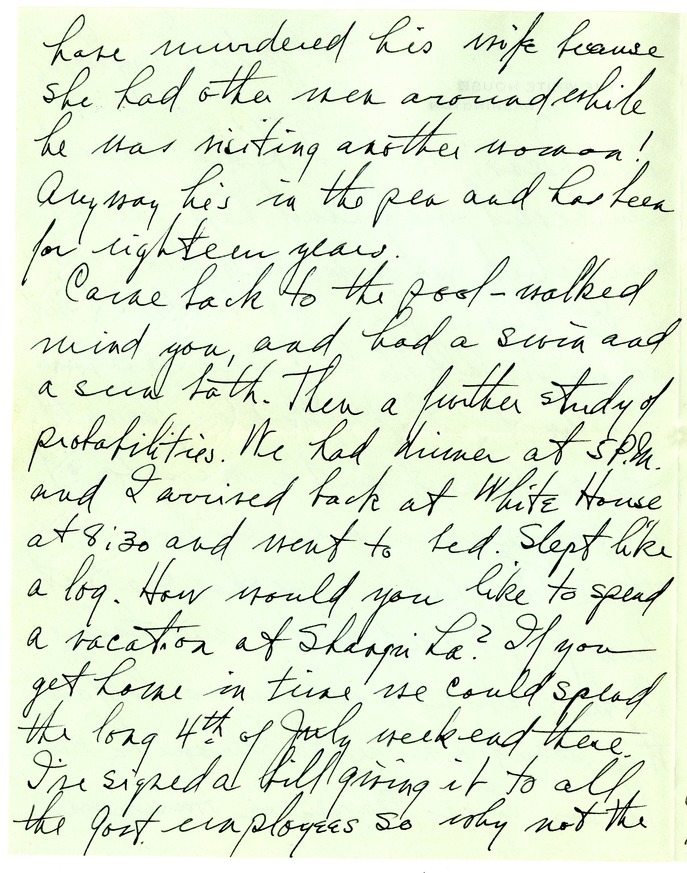 have murdered his wife because
she had other men around while
he was visiting another woman!
Anyway he's in the pen and has been
for eighteen years.
Came back to the pool - walked
mind you, and had a swim and
a sun bath. Then a further study of
probabilities. We had dinner at 5 P.M.
and I arrived back at White House
at 8:30 and went to bed. Slept like
a log. How would you like to spend
a vacation at Shangri La? If you
get home in time we could spend
the long 4th of July week-end there.
I've signed a bill giving it to all
the govt. employees so why not the